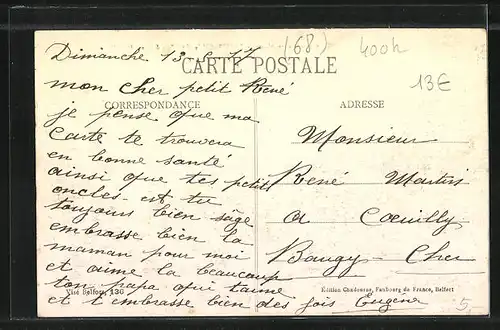 (68)
400h
Dimanche 13 - 17
CARTE POSTALE
13€
mon cher petit René
CORRESPONDANCE
ADRESSE
je pense que ma
carte te trouvera
en bonne santé
ainsi que tes petits
oncles. es tu
toujours bien sage
embrasse bien la
maman pour moi
et aime la beaucoup
ton papa qui t'aime
et t'embrasse bien des fois Eugène
Monsieur
René Martin
a Coeuilly
Baugy - Cher
Visé Belfort 136
Édition Chadourne, Faubourg de France, Belfort
5